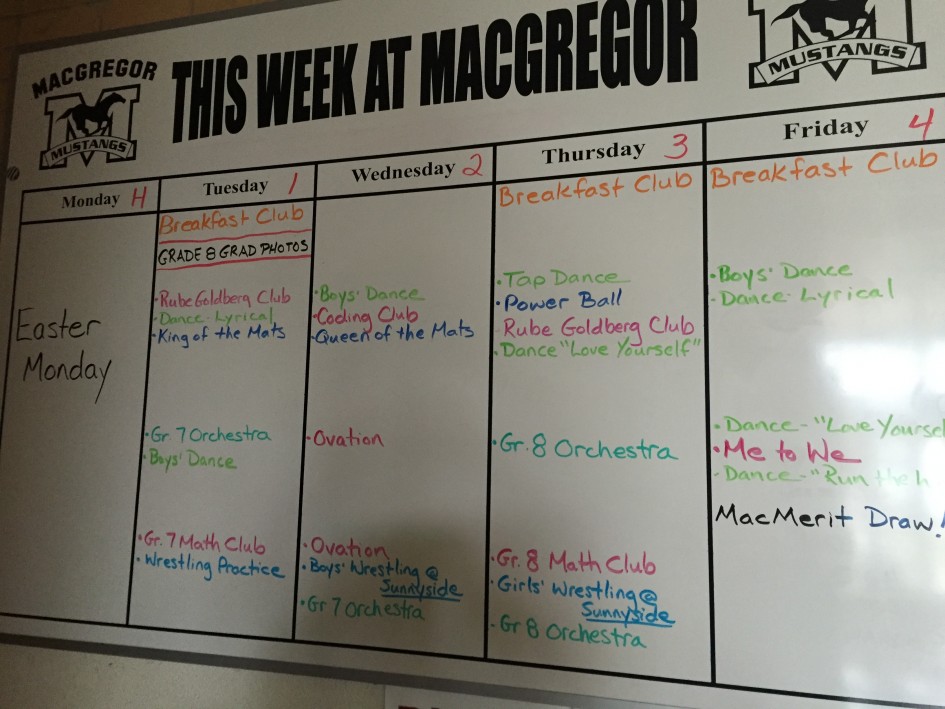 MACGREGOR
MUSTANGS
THIS WEEK AT MACGREGOR
MUSTANGS
Monday H
Easter
Monday
Tuesday 1
Breakfast Club
GRADE 8 GRAD PHOTOS
·Rube Goldberg Club
·Dance-Lyrical
·King of the Mats
·Gr. 7 Orchestra
·Boys' Dance
·Gr. 7 Math Club
·Wrestling Practice
Wednesday 2
·Boys' Dance
·Coding Club
·Queen of the Mats
·Ovation
·Ovation
·Boys' Wrestling @
Sunnyside
·Gr 7 Orchestra
Thursday 3
Breakfast Club
·Tap Dance
·Power Ball
·Rube Goldberg Club
·Dance "Love Yourself"
·Gr. 8 Orchestra
·Gr. 8 Math Club
·Girls' Wrestling @
Sunnyside
·Gr 8 Orchestra
Friday 4
Breakfast Club
·Boys' Dance
·Dance Lyrical
·Dance-"Love Yoursel
·Me to We
·Dance-"Run the h
MacMerit Draw!